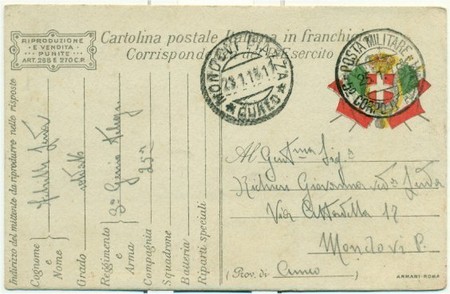 RIPRODUZIONE
E VENDITA
PUNITE
ART. 285 E 270 C.P.
Cartolina postale Italiana in franchigia
Corrispondenza del R. Esercito
MONDOVI PIAZZA
CUNEO
POSTA MILITARE
Indirizzo del mittente da riprodurre nelle risposte
Cognome e Nome
Grado soldato
Reggimento e Arma 3° Genio
Compagnia 25a
Squadrone
Batteria
Riparti speciali
Al Gent.ma Sig.a
Giovanna
Via Cittadella 17
Mondovì P.
(Prov. di Cuneo
ARMANI-ROMA